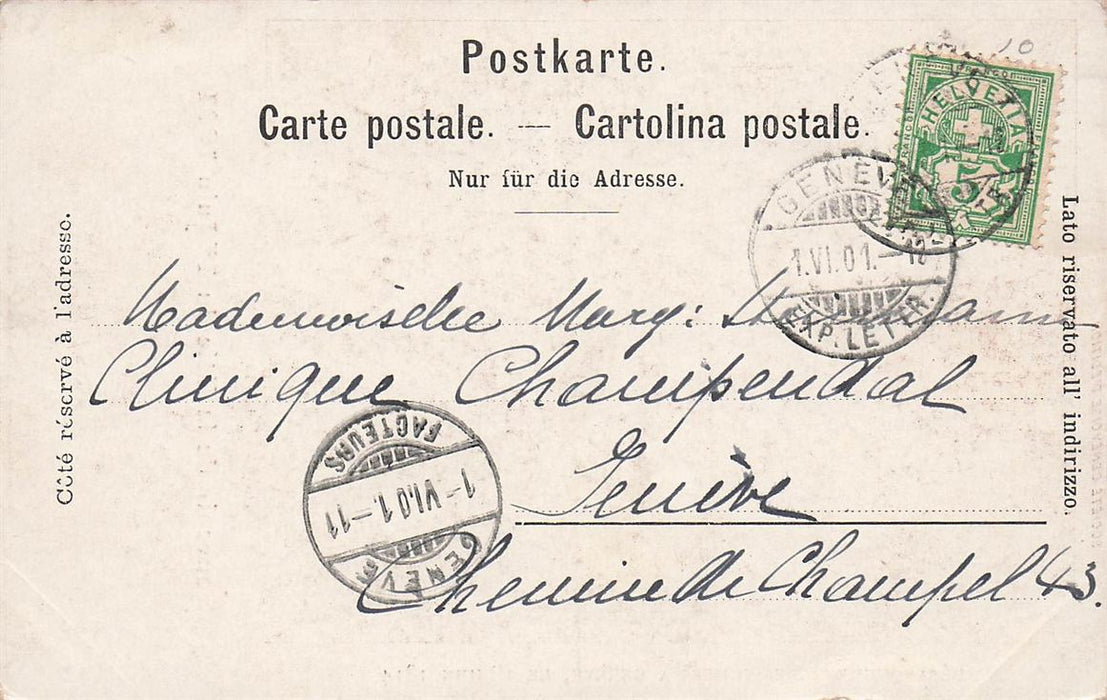 Postkarte.
Carte postale. — Cartolina postale.
Nur für die Adresse.
Côté réservé à l'adresse.
Lato riservato all' indirizzo.
HELVETIA
FRANCO
5
GENÈVE
1.VI.01.–12
EXP. LETTR.
Mademoiselle Marg:
Clinique Champendal
Genève
Chemin de Champel 43.
FACTEURS
1–VI.01.–11
GENÈVE